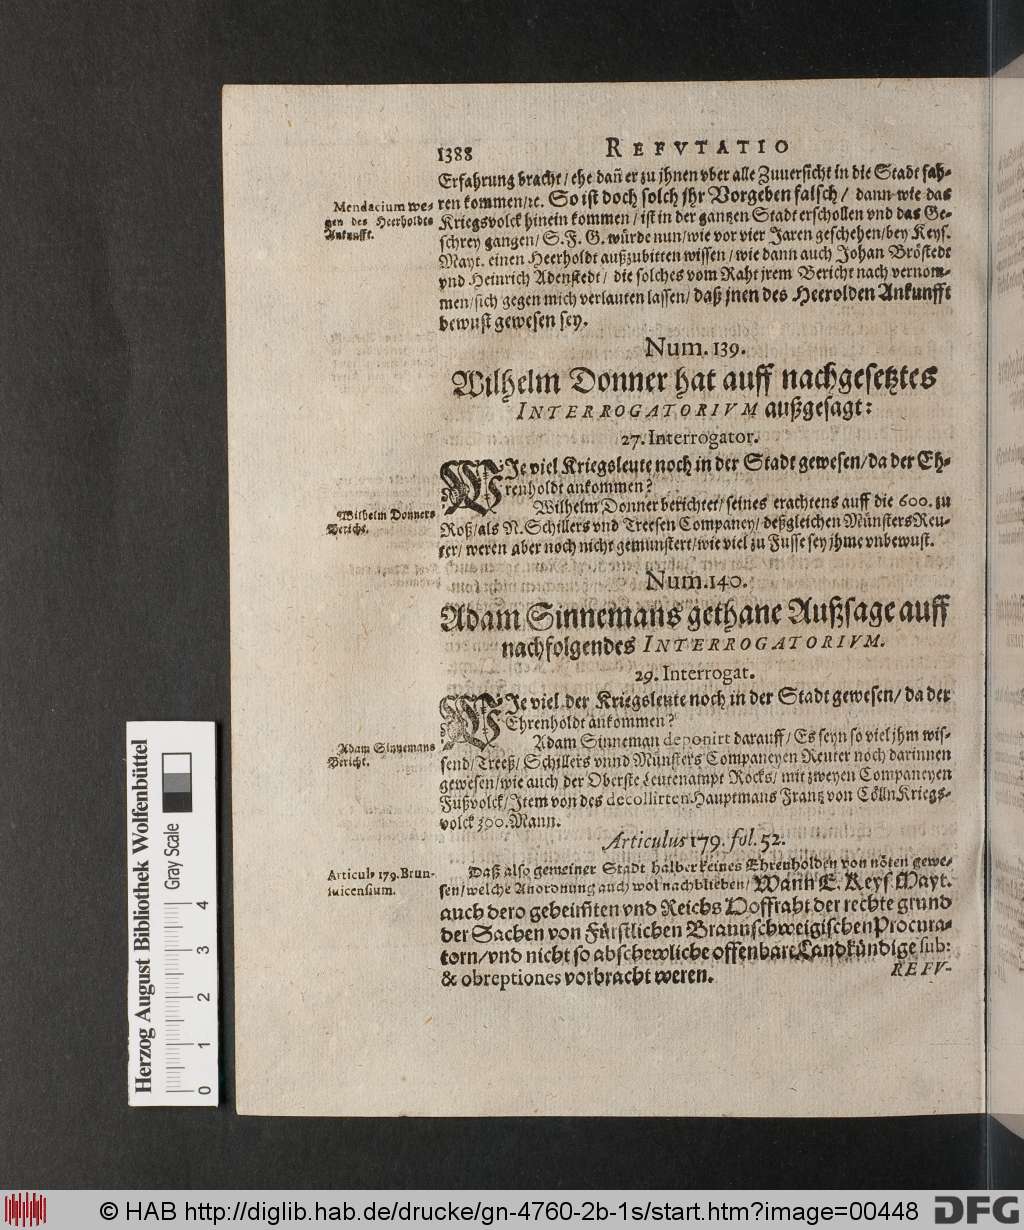 1388 REFVTATIO
Erfahrung bracht / ehe dañ er zu jhnen vber alle Zuuersicht in die Stadt fah-
ren kommen / ꝛc. So ist doch solch jhr Vorgeben falsch / dann wie das
Kriegsvolck hinein kommen / ist in der gantzen Stadt erschollen vnd das Ge-
schrey gangen / S. F. G. würde nun / wie vor vier Jaren geschehen / bey Keys.
Mayt. einen Heerholdt außzubitten wissen / wie dann auch Johan Bröstedt
vnd Heinrich Adenstedt / die solches vom Raht jrem Bericht nach vernom-
men / sich gegen mich verlauten lassen / daß jnen des Heerolden Ankunfft
bewust gewesen sey.
Mendacium we-
gen des Heerholdts
Ankunfft.
Num. 139.
Wilhelm Donner hat auff nachgesetztes
INTERROGATORIVM außgesagt:
27. Interrogator.
WJe viel Kriegsleute noch in der Stadt gewesen / da der Eh-
renholdt ankommen?
Wilhelm Donner berichtet / seines erachtens auff die 600. zu
Roß / als N. Schillers vnd Treesen Companey / deßgleichen Münsters Reu-
ter / weren aber noch nicht gemunstert / wie viel zu Fusse sey jhme vnbewust.
Wilhelm Donners
Bericht.
Num. 140.
Adam Sinnemans gethane Außsage auff
nachfolgendes INTERROGATORIVM.
29. Interrogat.
WJe viel der Kriegsleute noch in der Stadt gewesen / da der
Ehrenholdt ankommen?
Adam Sinneman deponirt darauff / Es seyn so viel jhm wis-
send / Treeß / Schillers vnnd Münsters Companeyen Reuter noch darinnen
gewesen / wie auch der Oberste Leutenampt Rocks / mit zweyen Companeyen
Fußvolck / Jtem von des decollirten Hauptmans Frantz von Cölln Kriegs-
volck 300. Mann.
Adam Sinnemans
Bericht.
Articulus 179. fol. 52.
Daß also gemeiner Stadt halber keines Ehrenholden von nöten gewe-
sen / welche Anordnung auch wol nachblieben / Wann E. Keys. Mayt.
auch dero geheimten vnd Reichs Hoffraht der rechte grund
der Sachen von Fürstlichen Braunschweigischen Procura-
torn / vnd nicht so abschewliche offenbare Landkündige sub:
& obreptiones vorbracht weren.
Articul9 179. Brun-
suicensium.
REFV-
Herzog August Bibliothek Wolfenbüttel
Gray Scale
0 1 2 3 4
© HAB http://diglib.hab.de/drucke/gn-4760-2b-1s/start.htm?image=00448
DFG